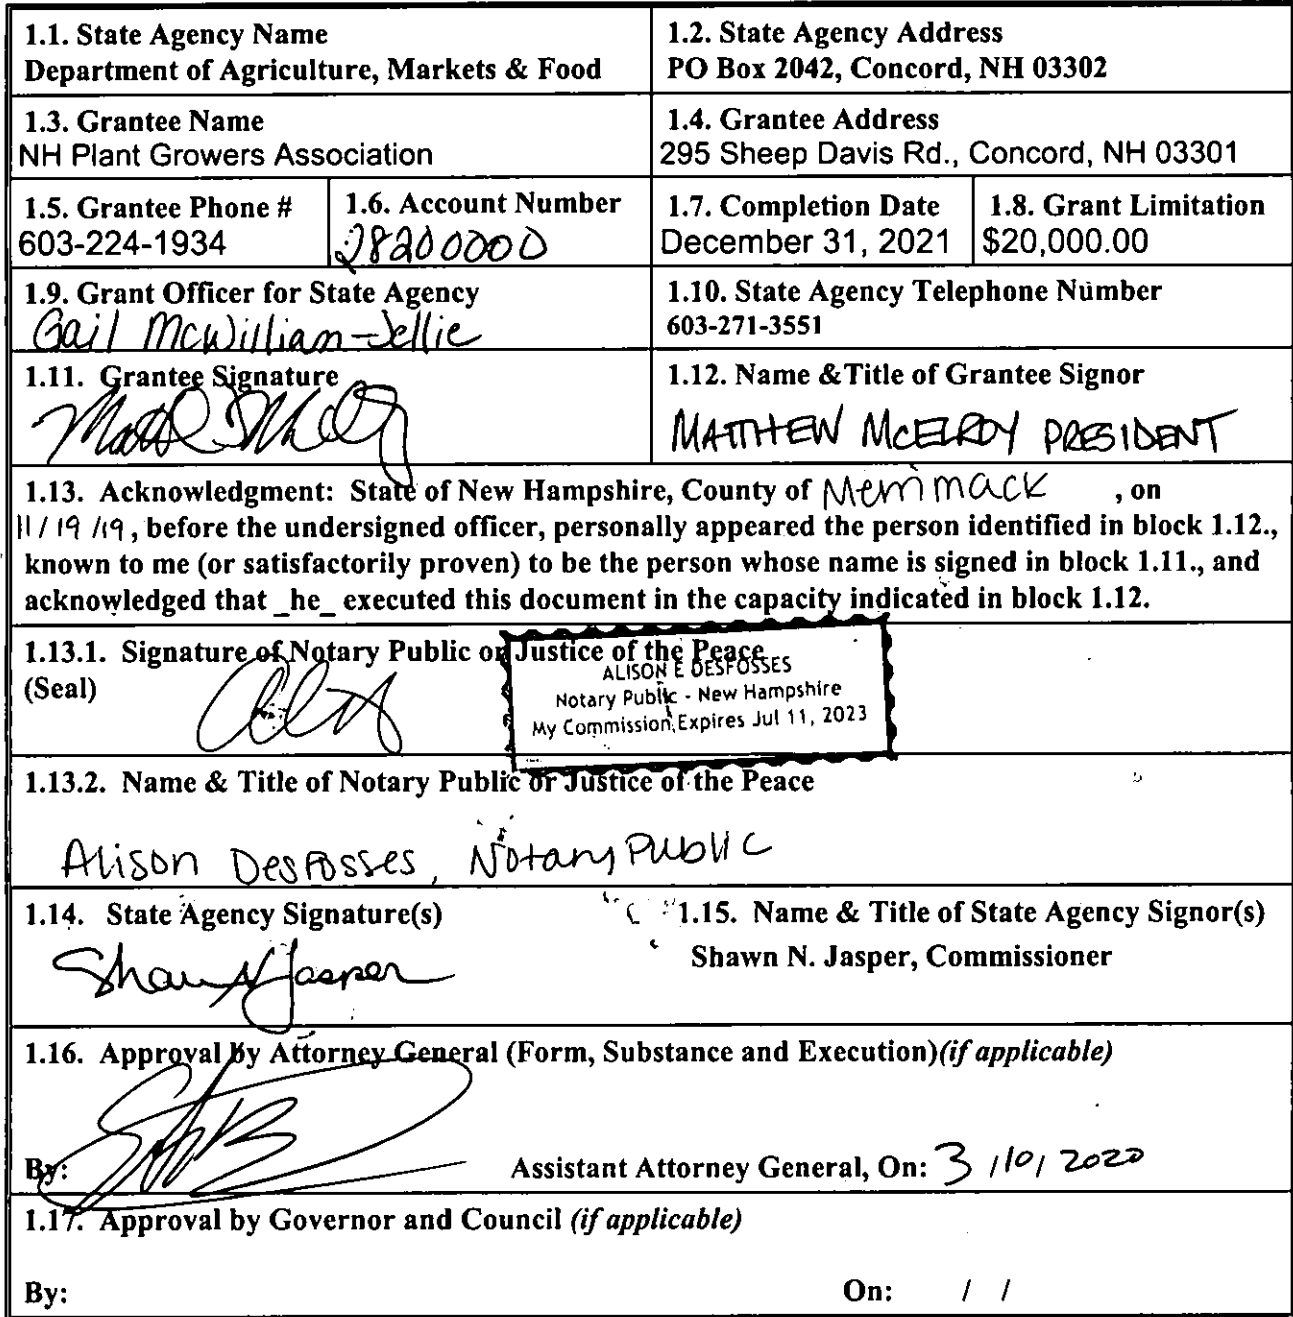 1.1. State Agency Name
Department of Agriculture, Markets & Food
1.2. State Agency Address
PO Box 2042, Concord, NH 03302
1.3. Grantee Name
NH Plant Growers Association
1.4. Grantee Address
295 Sheep Davis Rd., Concord, NH 03301
1.5. Grantee Phone #
603-224-1934
1.6. Account Number
28200000
1.7. Completion Date
December 31, 2021
1.8. Grant Limitation
$20,000.00
1.9. Grant Officer for State Agency
Gail McWilliam-Jellie
1.10. State Agency Telephone Number
603-271-3551
1.11. Grantee Signature
1.12. Name &Title of Grantee Signor
MATTHEW McELROY PRESIDENT
1.13. Acknowledgment: State of New Hampshire, County of Merrimack , on
11/19/19, before the undersigned officer, personally appeared the person identified in block 1.12.,
known to me (or satisfactorily proven) to be the person whose name is signed in block 1.11., and
acknowledged that _he_ executed this document in the capacity indicated in block 1.12.
1.13.1. Signature of Notary Public or Justice of the Peace
(Seal)
ALISON E DESFOSSES
Notary Public - New Hampshire
My Commission Expires Jul 11, 2023
1.13.2. Name & Title of Notary Public or Justice of the Peace
Alison Desfosses, Notary Public
1.14. State Agency Signature(s)
Shawn N Jasper
1.15. Name & Title of State Agency Signor(s)
Shawn N. Jasper, Commissioner
1.16. Approval by Attorney General (Form, Substance and Execution)(if applicable)
By:
Assistant Attorney General, On: 3/10/2020
1.17. Approval by Governor and Council (if applicable)
By:
On: / /